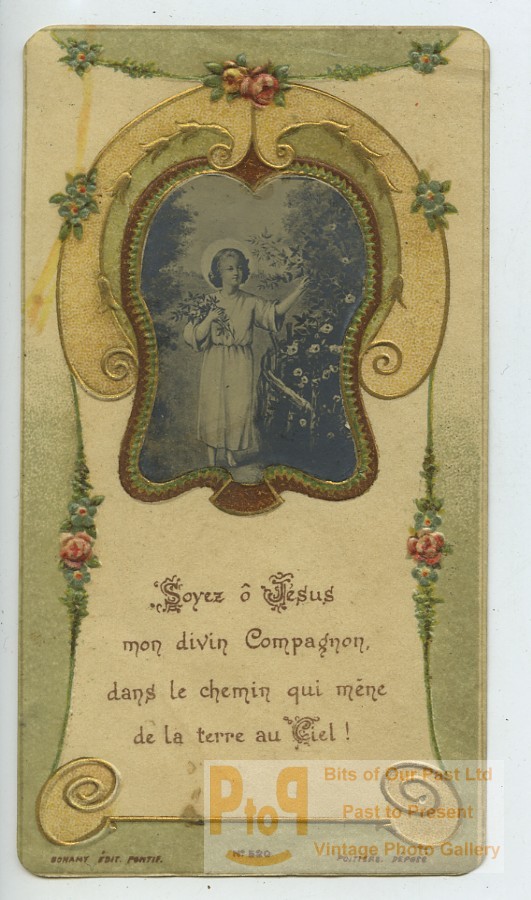 Soyez ô Jésus
mon divin Compagnon,
dans le chemin qui mène
de la terre au Ciel !
PtoP
Bits of Our Past Ltd
Past to Present
Vintage Photo Gallery
BONAMY ÉDIT. PONTIF.
Nº 520
POITIERS. DÉPOSÉ